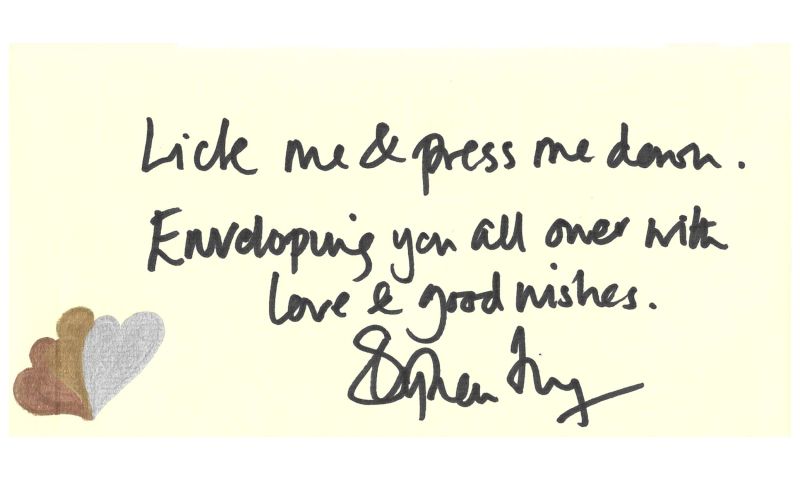 Lick me & press me down.
Enveloping you all over with
love & good wishes.
Stephen Fry